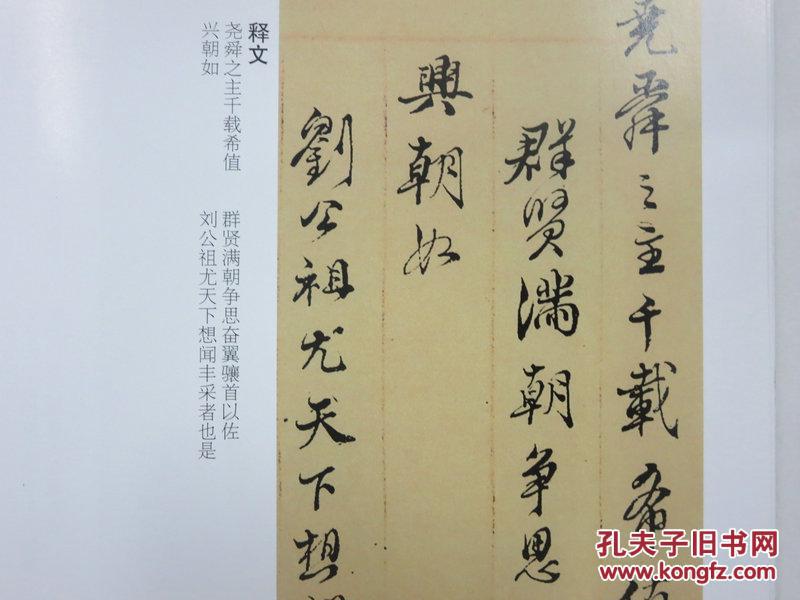 堯舜之主千載希
群賢滿朝争思
興朝如
劉公祖尤天下想
释文
尧舜之主千载希值
群贤满朝争思奋翼骧首以佐
兴朝如
刘公祖尤天下想闻丰采者也是
孔夫子旧书网
www.kongfz.com